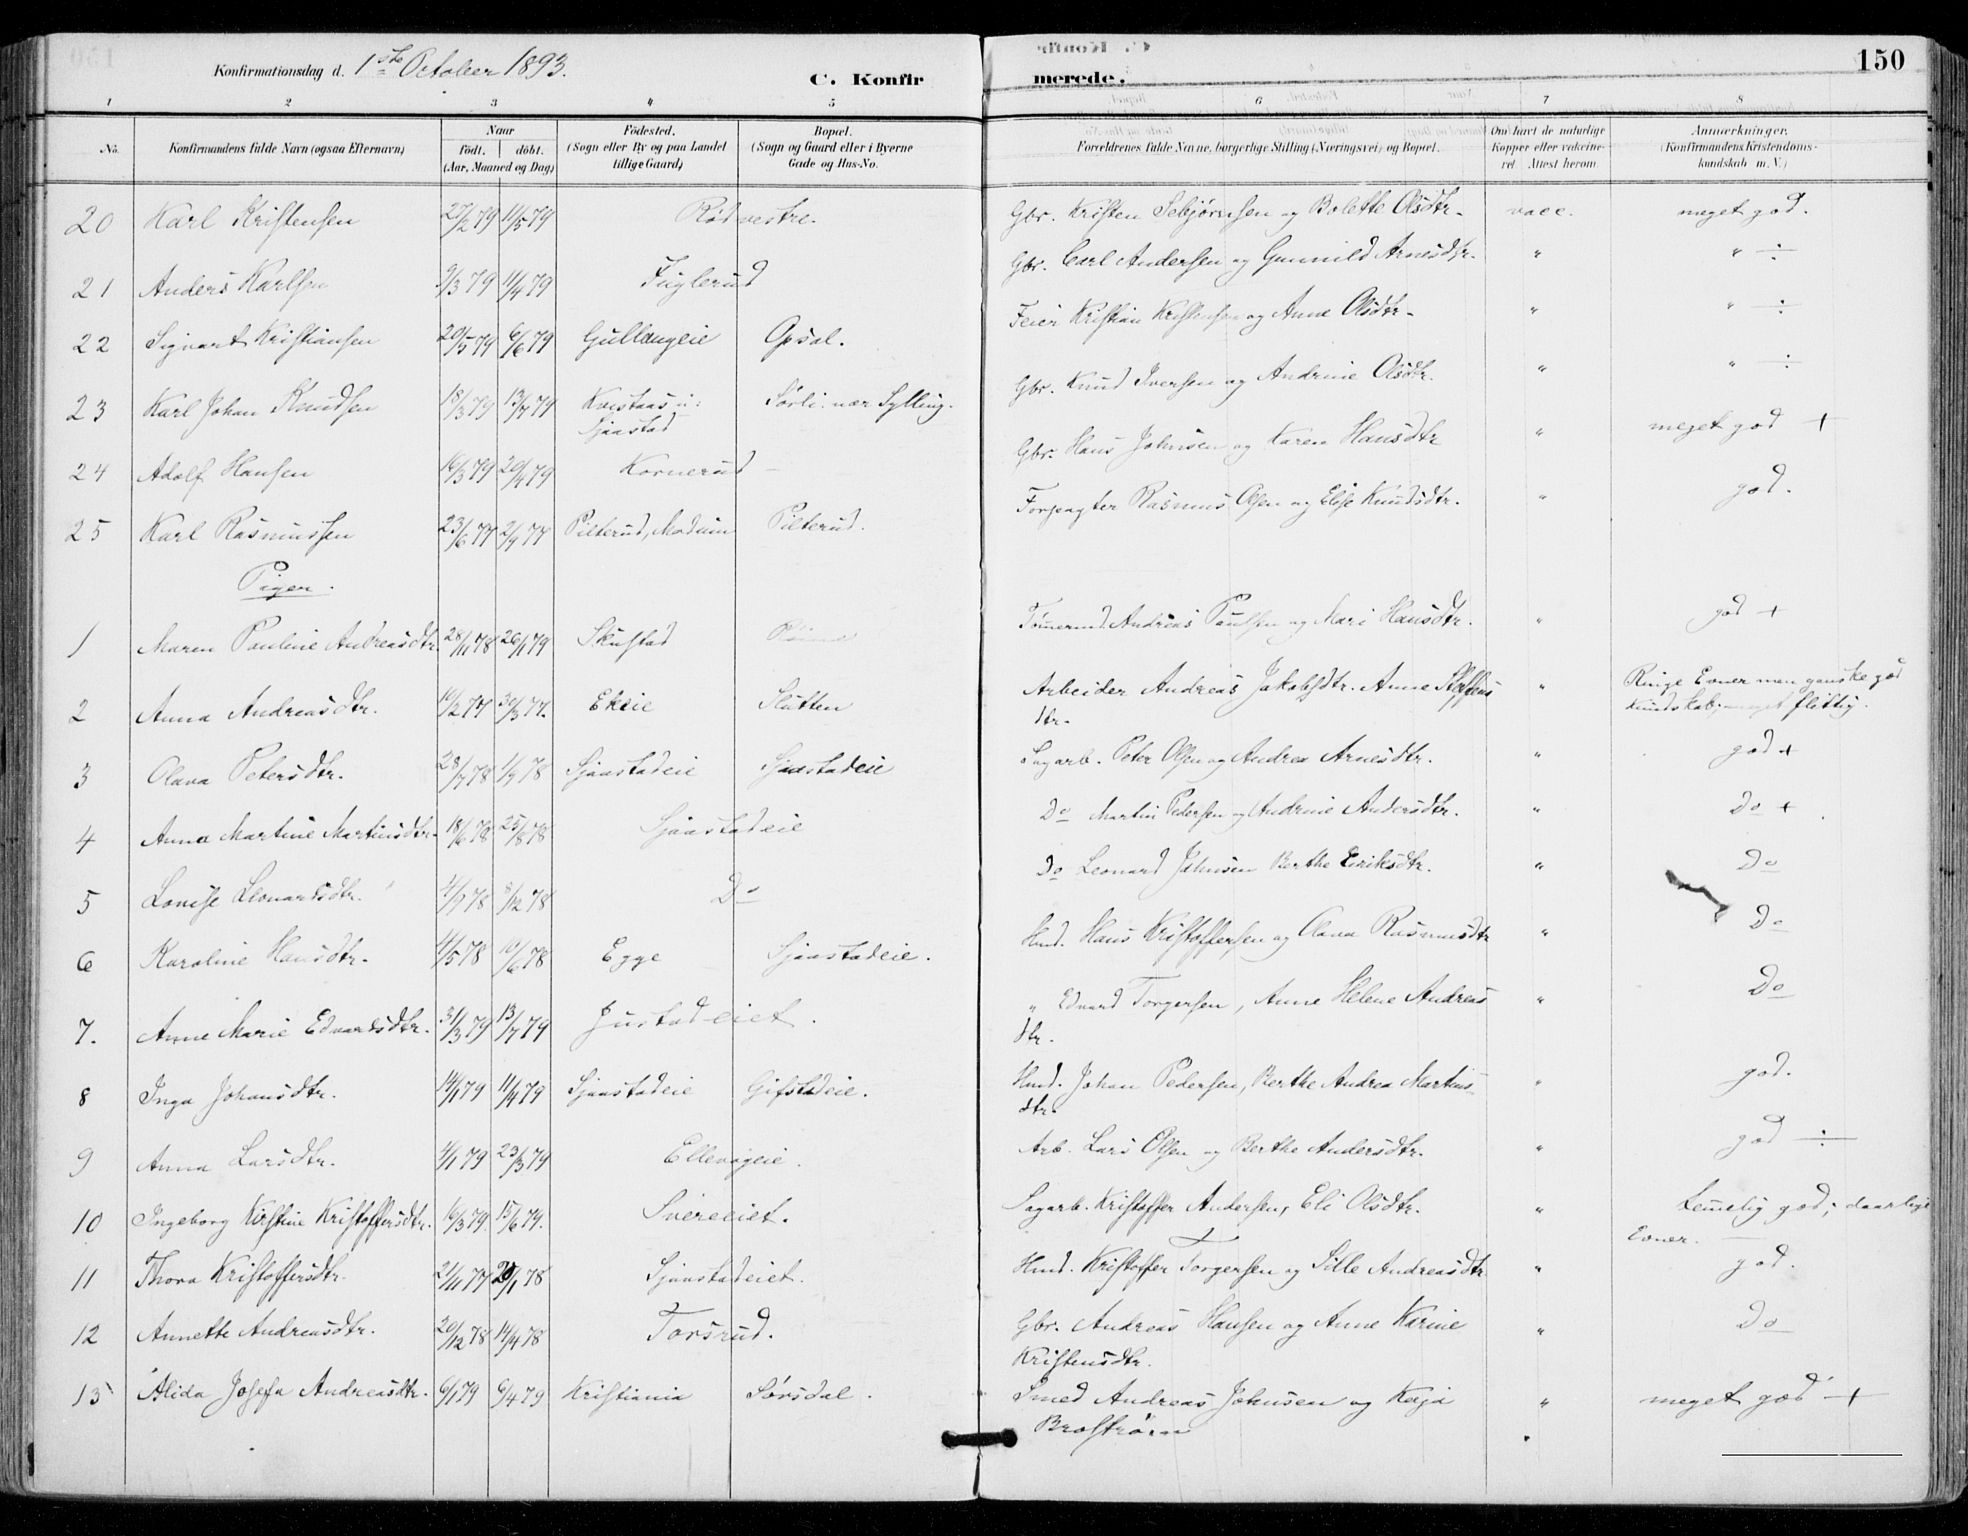 150
Konfirmationsdag d. 1ste October 1893.
C. Konfir merede.
1 2 3 4 5 6 7 8
No.
Konfirmandens fulde Navn (ogsaa Efternavn)
Naar
født. døbt.
(Aar, Maaned og Dag)
Födested.
(Sogn eller By og paa Landet
tillige Gaard)
Bopæl.
(Sogn og Gaard eller i Byerne
Gade og Hus-No.
Forældrenes fulde Navne, borgerlige Stilling (Næringsvei) og Bopæl.
Om havt de naturlige
Kopper eller vakcine-
ret. Attest herom.
Anmærkninger.
(Konfirmandens Kristendoms-
kundskab m. V.)
20 Karl Kristensen 27/2 79 11/5 79 Rød vestre. Gbr. Kristen Sebjørnsen og Bolette Olsdtr. vacc. meget god.
21 Anders Karlsen 9/3 79 11/4 79 Fuglerud Gbr. Carl Andersen og Gunnild Arnesdtr. " " ÷
22 Sigvart Kristiansen 20/5 79 6/6 79 Gullaugeie Opsal. Feier Kristian Kristensen og Anne Olsdtr. " " ÷
23 Karl Johan Knudsen 18/3 79 13/7 79 Sørli nær Sylling. Gbr. Knud Iversen og Andrine Olsdtr. " " ÷
Sjaastad
24 Adolf Hansen 16/3 79 20/4 79 Kornerud Gbr. Hans Johnsen og Karen Hansdtr " meget god +
25 Karl Rasmussen 23/6 77 2/9 77 Pilterud, Modum Pilterud. Forpagter Rasmus Olsen og Elise Knudsdtr. " god.
Piger.
1 Maren Pauline Andreasdtr. 28/11 78 26/1 79 Skustad Tømmermd. Andreas Paulsen og Mari Hansdtr. " god +
2 Anna Andreasdtr. 10/2 77 30/3 77. Ekeie Slutten Arbeider Andreas Jakobsdtr. Anne Steffens " Ringe Evner men ganske god
dtr. kundskab; meget flittig.
3 Olava Petersdtr. 28/7 78 1/9 78 Sjaastadeie Sjaastadeie Sagarb. Peter Olsen og Andrea Arnesdtr. " god +
4 Anna Martine Martinsdtr. 18/6 78 25/8 78 Sjaastadeie Do Martin Pedersen og Andrine Andersdtr. " Do +
5 Lovise Leonardsdtr. 4/9 78 8/12 78 Do Do Leonard Johnsen Berthe Eriksdtr. " Do
6 Karoline Hansdtr. 4/5 78 10/6 78 Egge Sjaastadeie. Hmd. Hans Kristoffersen og Olava Rasmusdtr " Do
7. Anne Marie Edvardsdtr. 31/3 79 13/7 79 Justadeiet. " Edvard Torgersen, Anne Helene Andreas " Do
dtr.
8 Inga Johansdtr. 14/1 79 11/4 79 Sjaastadeie Gifstadeie. Hmd. Johan Pedersen, Berthe Andrea Martins- " god.
dtr.
9 Anna Larsdtr. 4/1 79 23/3 79 Ellevogeie. Arb. Lars Olsen og Berthe Andersdtr. " god ÷
10 Ingeborg Kirstine Kristoffersdtr. 16/3 79. 15/6 79. Svereeiet. Sagarb. Kristoffer Andersen, Eli Olsdtr. " Temmelig god; daarlige
Evner.
11 Thora Kristoffersdtr. 21/11 77 20/1 78 Sjaastadeiet. Hmd. Kristoffer Torgersen og Sille Andreasdtr " god.
12 Annette Andreasdtr. 20/12 78 14/4 78 Torsrud. Gbr. Andreas Hansen og Anne Karine " Do
Kristensdtr.
13 Alida Josefa Andreasdtr. 6/1 79 6/4 79 Kristiania Sørsdal. Smed Andreas Johnsen og Kaja " meget god +
Broström